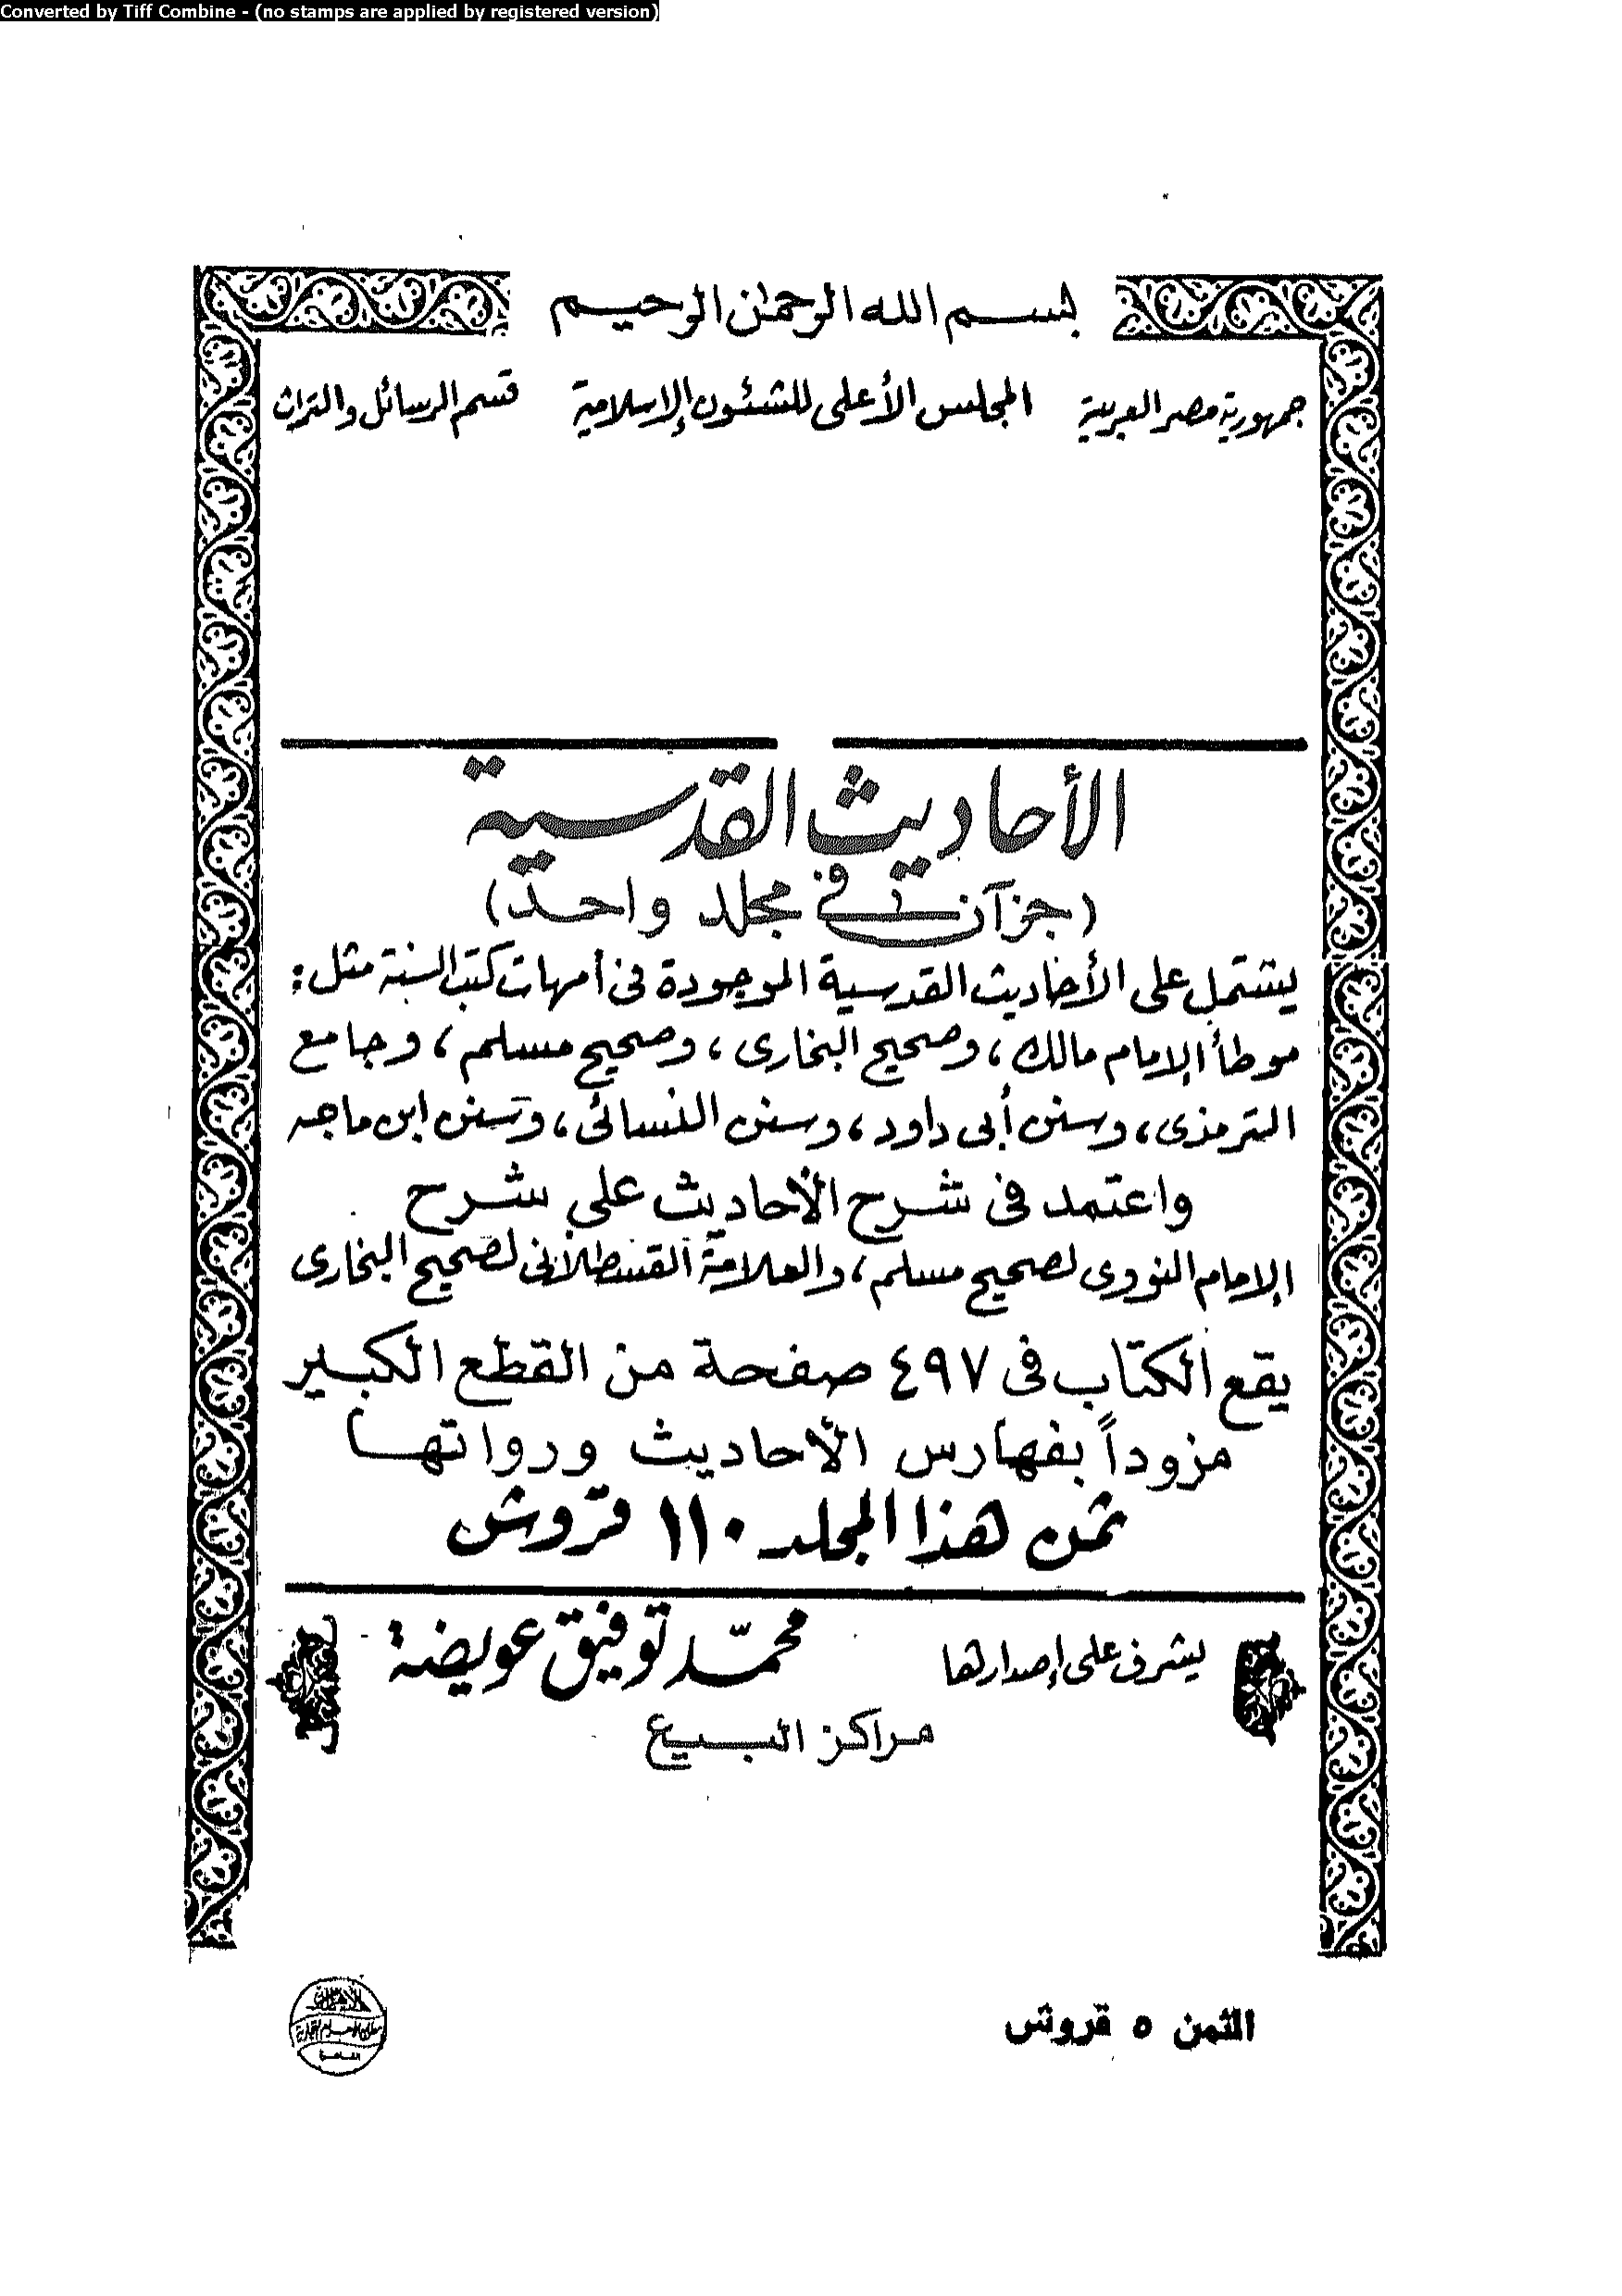 Converted by Tiff Combine - (no stamps are applied by registered version)
بسم الله الرحمن الرحيم
جمهورية مصر العربية المجلس الأعلى للشئون الإسلامية قسم الرسائل والتراث
الأحاديث القدسية
(جزآن فى مجلد واحد)
يشتمل على الأحاديث القدسية الموجودة فى أمهات كتب السنة مثل:
موطأ الإمام مالك، وصحيح البخارى، وصحيح مسلم، وجامع
الترمذى، وسنن أبى داود، وسنن النسائى، وسنن ابن ماجه
واعتمد فى شرح الأحاديث على شرح
الإمام النووى لصحيح مسلم، والعلامة القسطلانى لصحيح البخارى
يقع الكتاب فى ٤٩٧ صفحة من القطع الكبير
مزوداً بفهارس الأحاديث ورواتها
ثمن هذا المجلد ١١٠ قروش
يشرف على إصدارها محمد توفيق عويضة
مراكز البيع
الثمن ٥ قروش